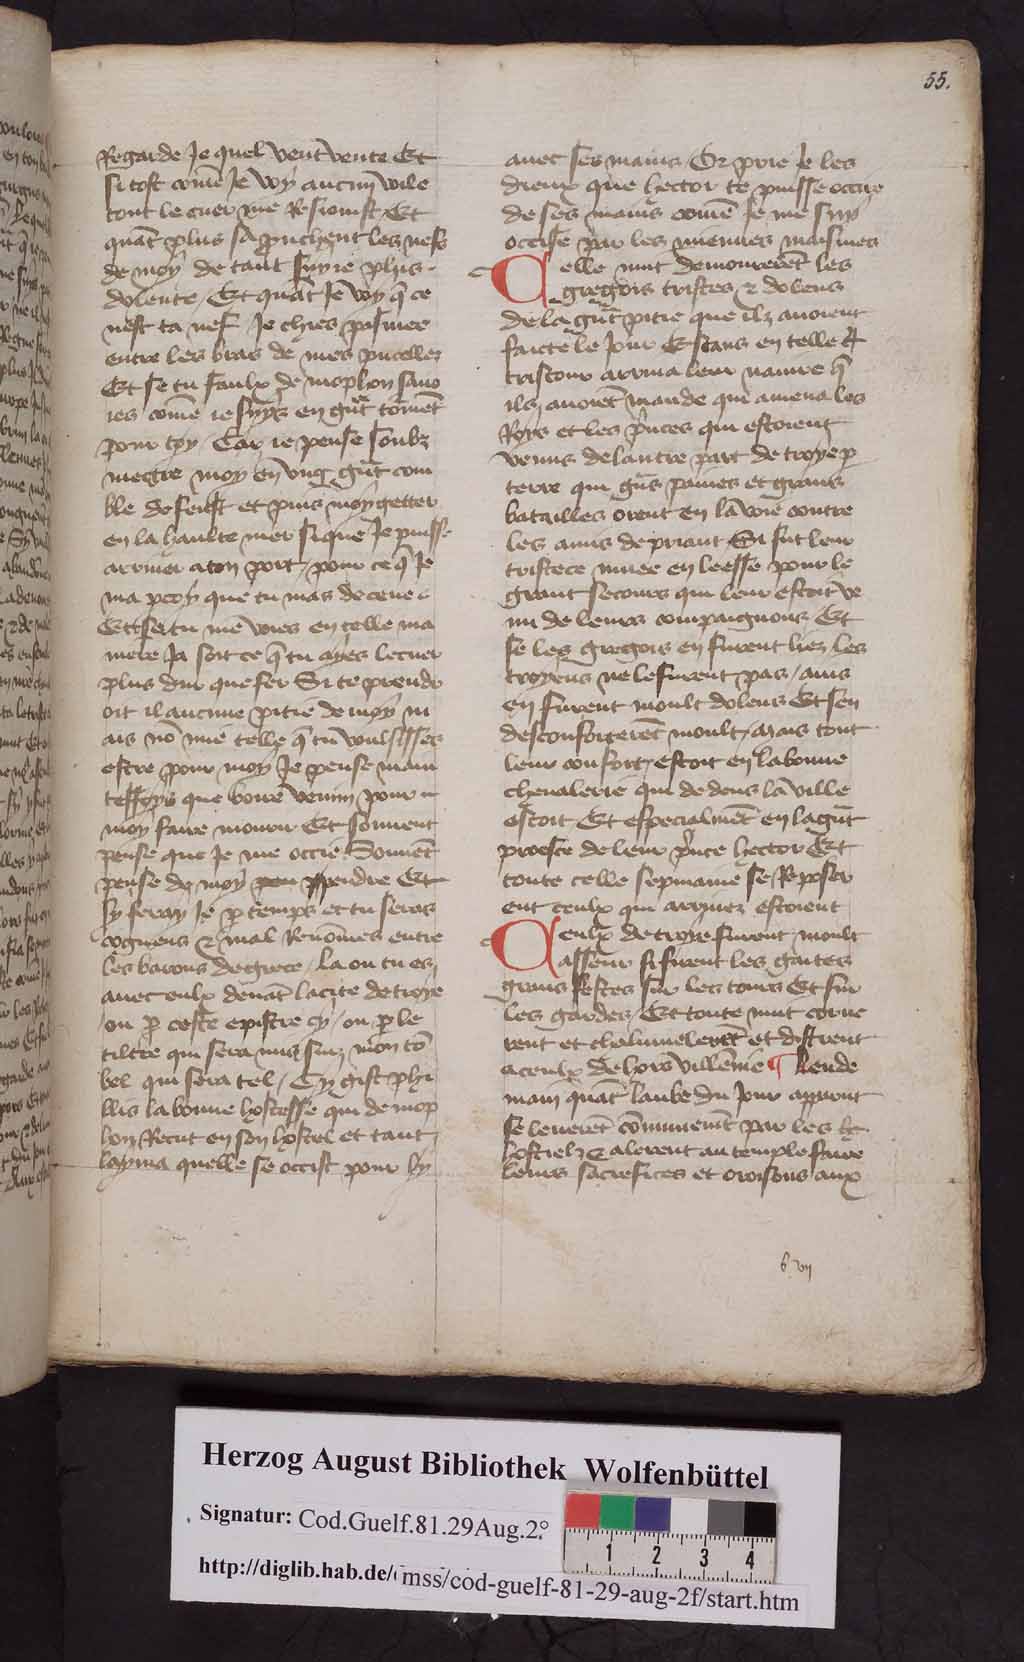 55.
Regarde Je quel vent vente Et
si tost come Je voy aucun voile
tout le cuer me Resioinst Et
quāt plus sapruchent les nefs
de moy de tant suy ie plus
dolente / Et quāt Je voy q̄ ce
nest ta nef Je chies pasmee
entre les bras de mes pucelles
Et se tu faulx de mophon sauo
ies come ie suys en gn̄t tormēt
pour toy / Car ie pense soubz
mectre moy en vng gn̄t com
ble de feust et puis moy getter
en la haulte mer si que Je puisse
arriuer a ton port / pour ce q̄ Je
ma pcoy que tu mas deceue
Et se tu me voies en telle ma
niere Ja soit ce q̄ tu ayes le cuer
plus dur que fer Si te prendr
oit il aucune pitie de moy m
ais nō mie telle q̄ tu voulsisses
estre pour moy Je pense main
teffoys que boire venim pour
moy faire mourir Et souuent
pense que Je me occie Souuēt
pense de moy pendre Et
sy feray Je p temps et tu seras
cogneus & mal Renōmes entre
les barons de grece / La ou tu es
auec eulx deuāt la cite de troye
ou p ceste epistre cy / ou p le
tiltre qui sera mis sur mon tō
bel qui sera tel / Cy gist phi
llis la bonne hostesse qui de mop
hon Recut en son hostel et tant
layma quelle se occist pour ly
auec ses mains / Or prie Je les
dieux que hector te puisse occire
de ses mains come Je me suy
occise par les miennes maismes
Celle nuit demourerēt les
gregois tristes & dolens
de la gn̄t pitie que ilz auoient
faicte le Jour Et staus en telle
tristour arriua leur nauire q̄
ilz auoiēt mande qui amena les
Roys et les p̄nces qui estoient
venus de lautre part de troye p
terre qui gn̄s paines et grans
batailles orent en la voie contre
les amis de priant Si fut leur
tristece muee en leesse pour le
grant secours qui leur estoit ve
nu de leurs compaignons Et
se les gregois en furent liez les
troyens ne le furent pas / ains
en furent moult dolens Et sen
desconforterēt moult / Mais tout
leur confort / estoit en la bonne
cheualerie qui dedens la ville
estoit Et especialmēt en la gn̄t
proesce de leur p̄nce hector Et
toute celle sepmaine se Reposer
ent ceulx qui arriuez estoient
Ceulx de troye furent moult
asseur si firent les gaites
grans festes sur les tours Et sur
les gardes / Et toute nuit corne
rent et chalumelerēt et distrent
a ceulx dehors villenie ¶ Lende
main quāt laube du Jour apparut
se leuerēt cōmunemēt par les
hostielz & alerent au temple faire
leurs sacrefices et oroisons aux
6 vij
Herzog August Bibliothek Wolfenbüttel
Signatur: Cod.Guelf.81.29Aug.2°
1 2 3 4
http://diglib.hab.de/mss/cod-guelf-81-29-aug-2f/start.htm